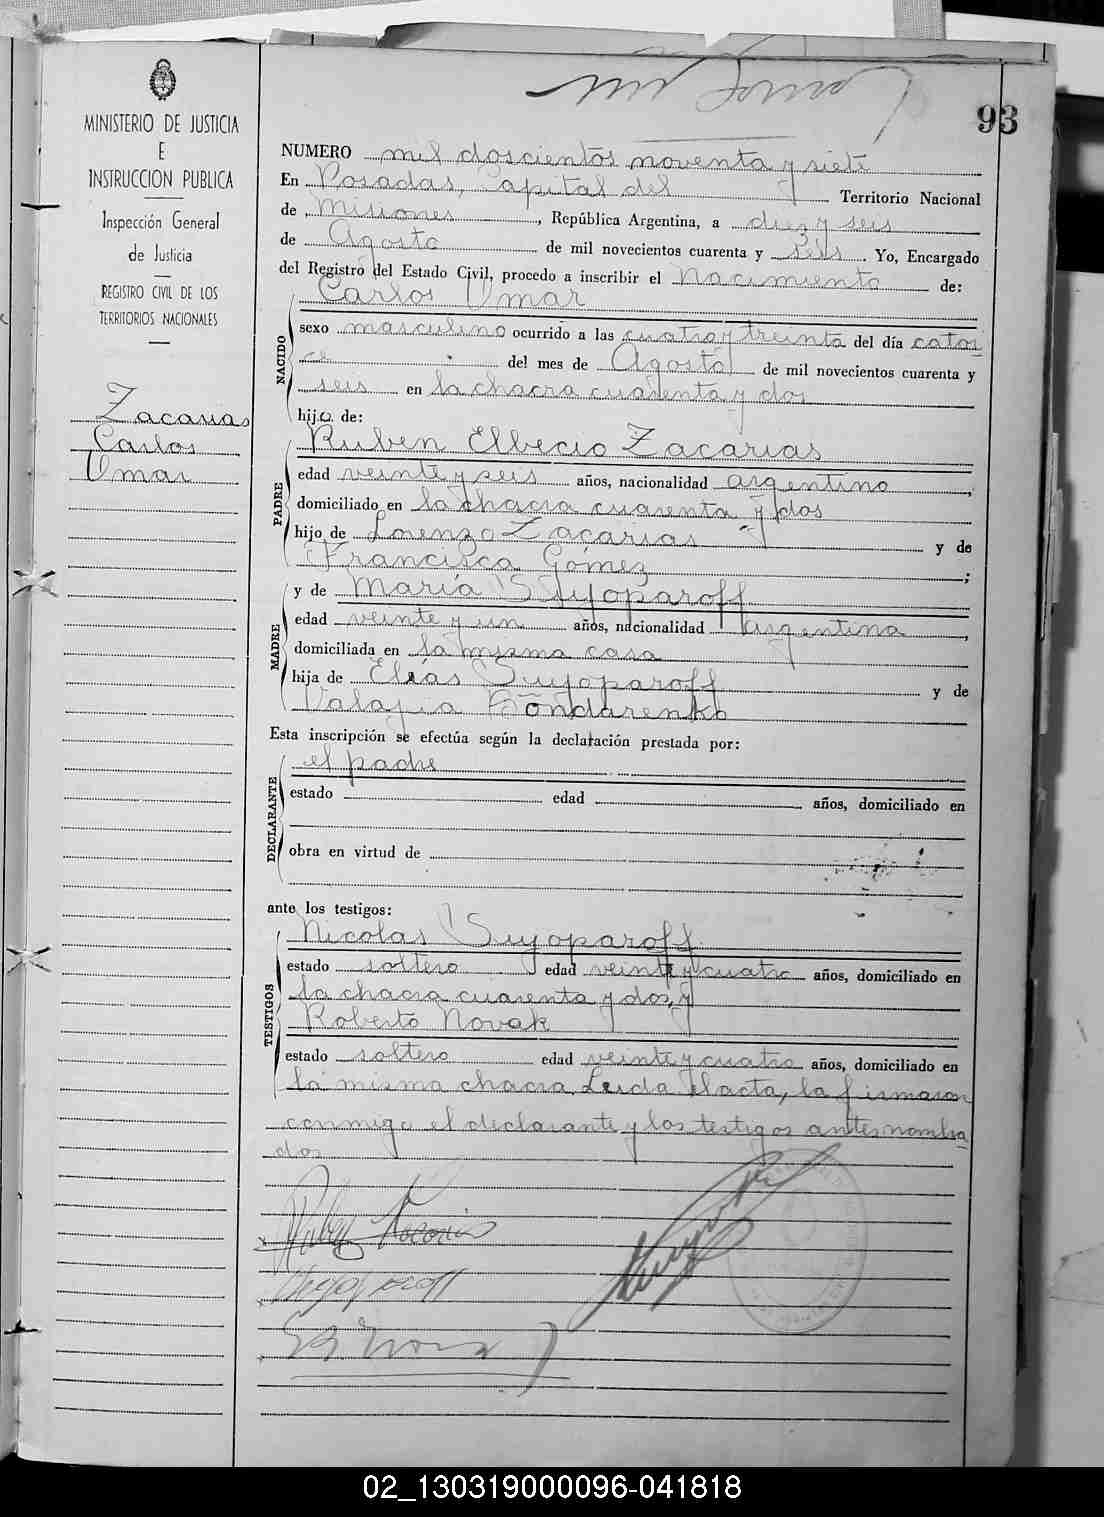 93
MINISTERIO DE JUSTICIA
E
INSTRUCCION PUBLICA
Inspección General
de Justicia
REGISTRO CIVIL DE LOS
TERRITORIOS NACIONALES
Zacarias
Carlos
Omar
NUMERO mil doscientos noventa y siete
En Posadas, Capital del Territorio Nacional
de Misiones, República Argentina, a diez y seis
de Agosto de mil novecientos cuarenta y seis. Yo, Encargado
del Registro del Estado Civil, procedo a inscribir el Nacimiento de:
Carlos Omar
NACIDO
sexo masculino ocurrido a las cuatro y treinta del día cator
ce del mes de Agosto de mil novecientos cuarenta y
seis en la chacra cuarenta y dos
hijo de:
Ruben Elbecio Zacarias
PADRE
edad veinte y seis años, nacionalidad argentino,
domiciliado en la chacra cuarenta y dos
hijo de Lorenzo Zacarias y de
Francisca Gómez;
MADRE
y de María Suyoparoff
edad veinte y un años, nacionalidad argentina,
domiciliada en la misma casa
hija de Elías Suyoparoff y de
Valajia Bondarenko
Esta inscripción se efectúa según la declaración prestada por:
el padre
DECLARANTE
estado edad años, domiciliado en
obra en virtud de
ante los testigos:
Nicolas Suyoparoff
TESTIGOS
estado soltero edad veinte y cuatro años, domiciliado en
la chacra cuarenta y dos, y
Roberto Novak
estado soltero edad veinte y cuatro años, domiciliado en
la misma chacra. Leida el acta, la firmaron
conmigo el declarante y los testigos antes nombra
dos
02_130319000096-041818